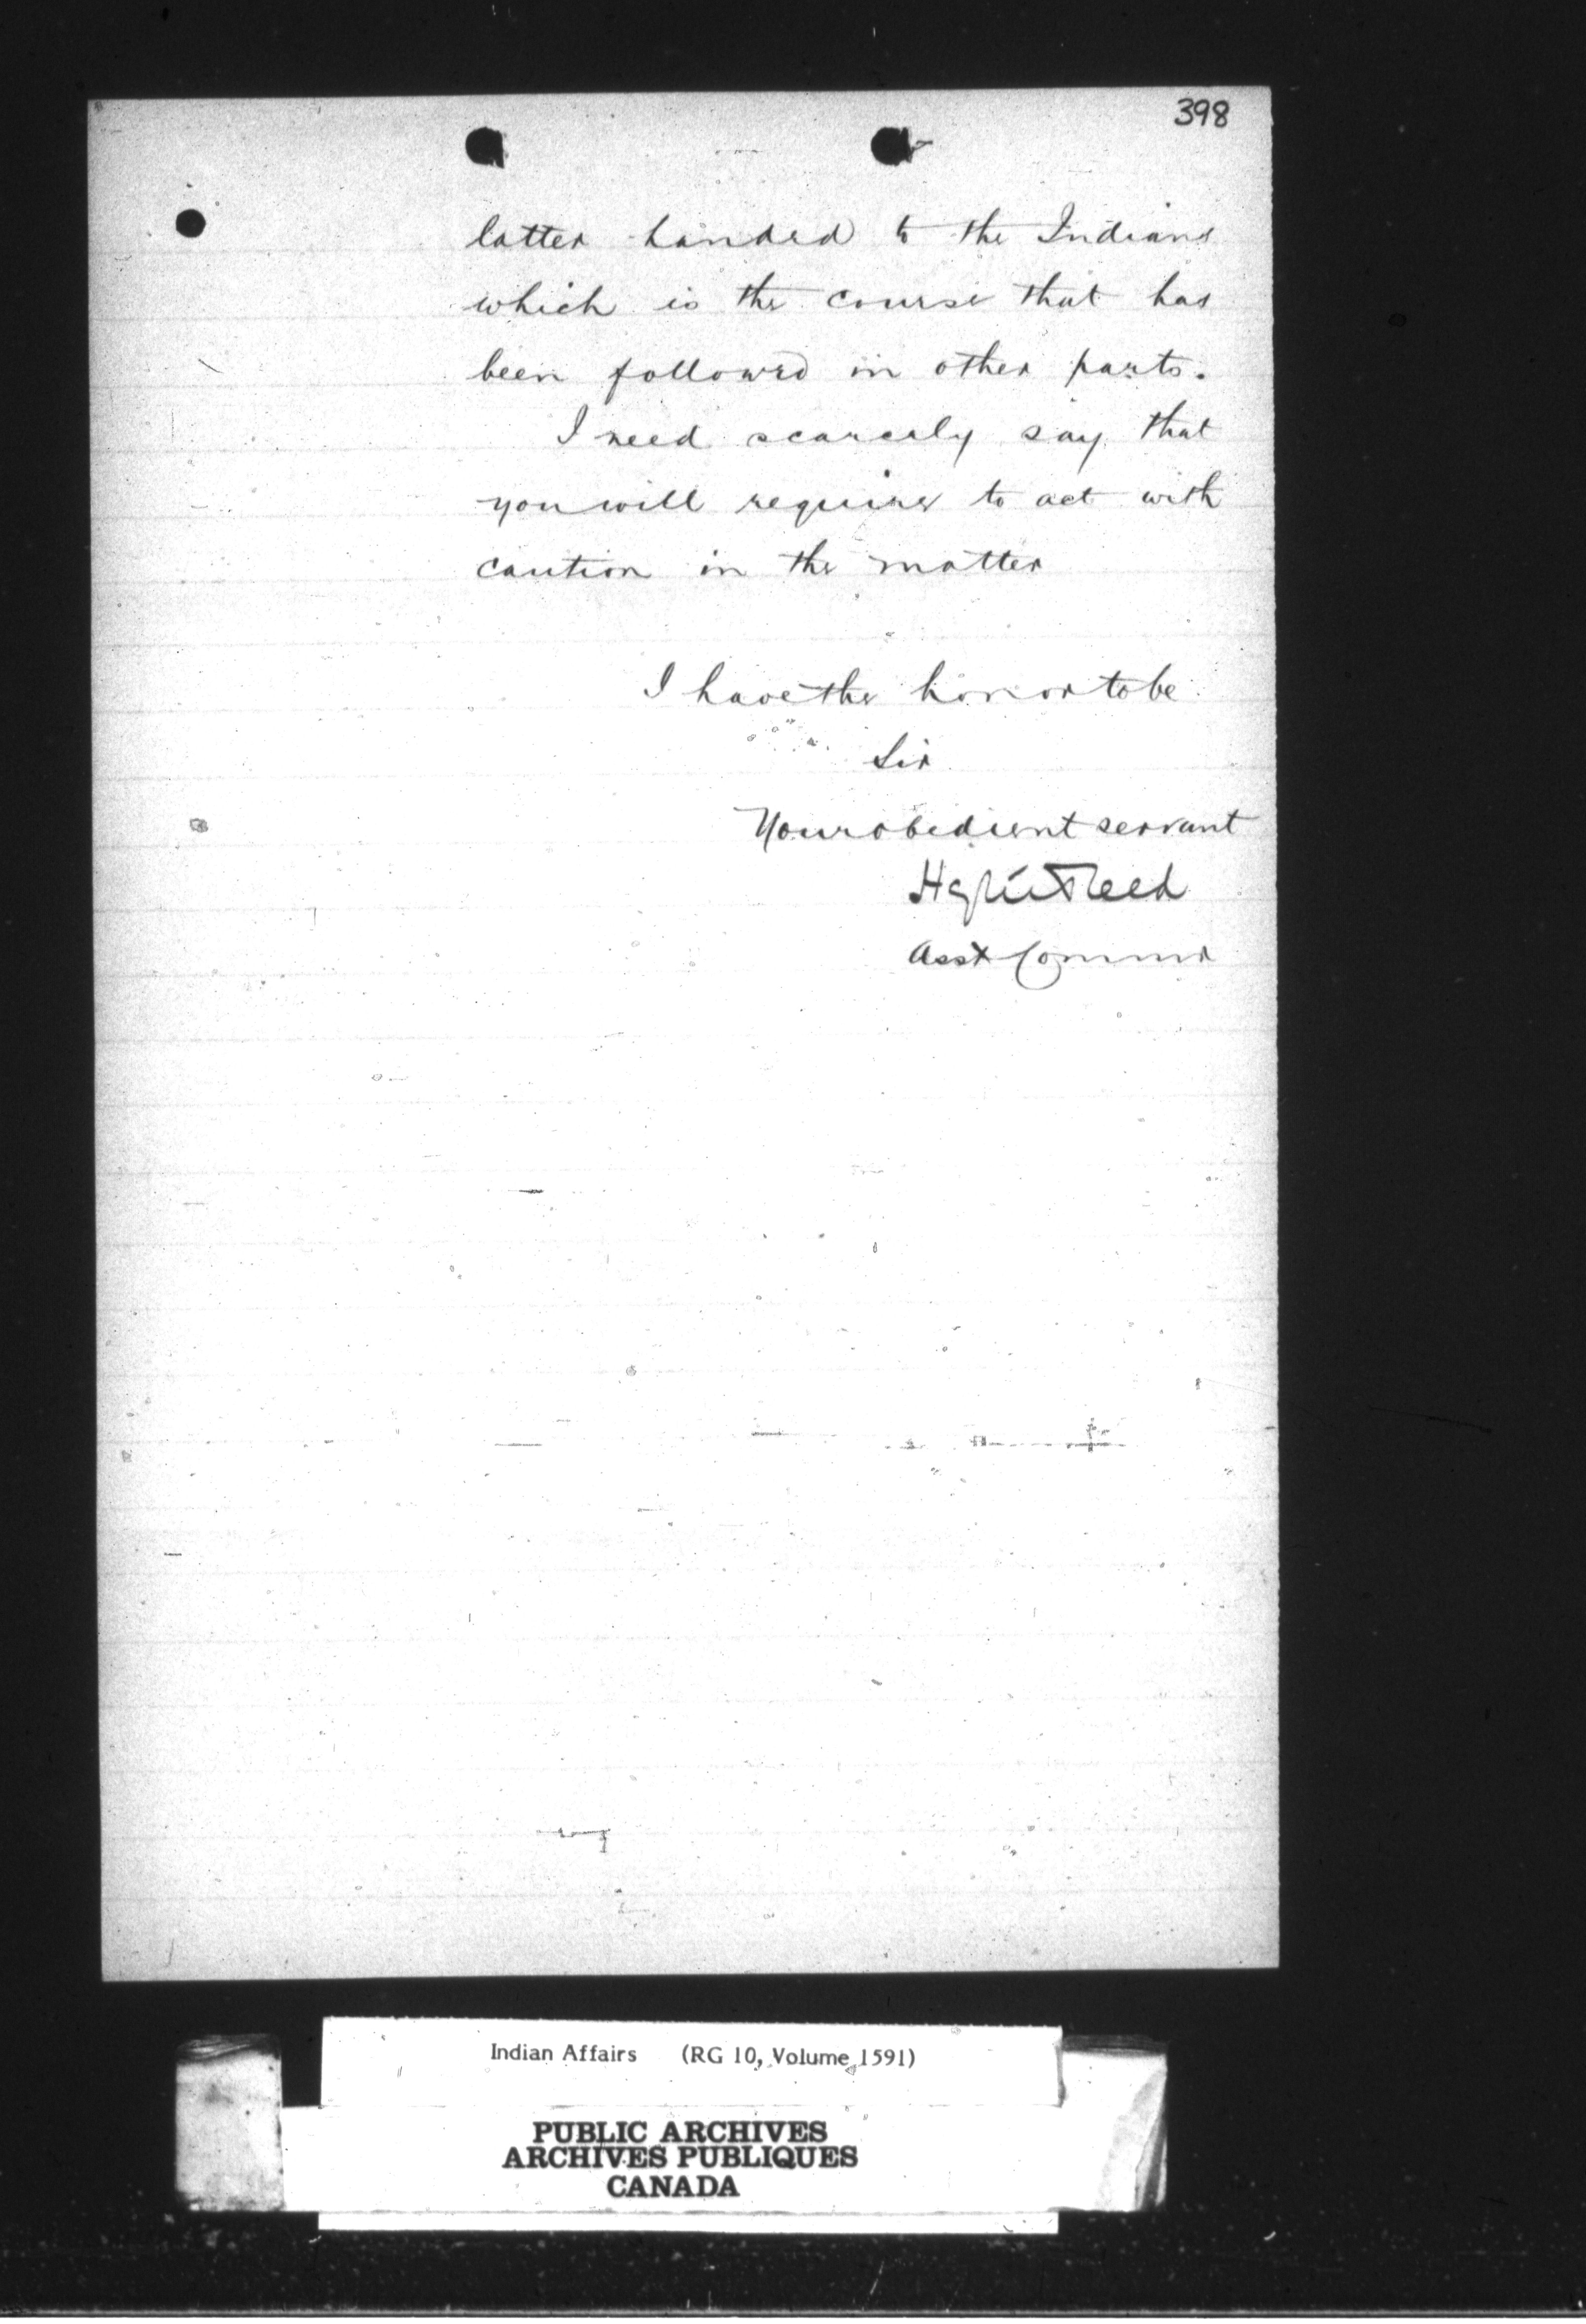 398
latter handed to the Indians
which is the course that has
been followed in other parts.
I need scarcely say that
you will require to act with
caution in the matter
I have the honor to be
Sir
Your obedient servant
Hayter Reed
Asst Commr
Indian Affairs (RG 10, Volume 1591)
PUBLIC ARCHIVES
ARCHIVES PUBLIQUES
CANADA